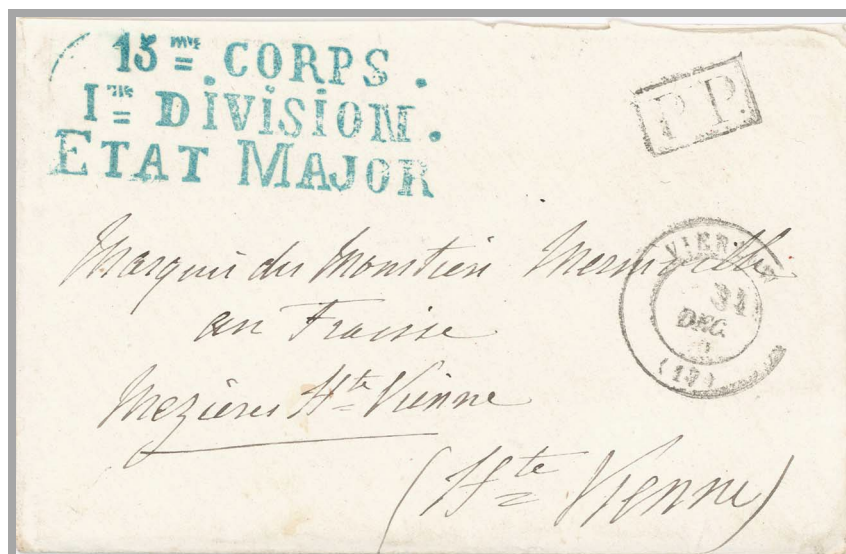 15me CORPS.
1re DIVISION.
ETAT MAJOR
P.P.
VIER
31
DEC.
(19)
Marquis du Moustier Mermerville
au Fraisse
Mezières Hte Vienne
(Hte Vienne)